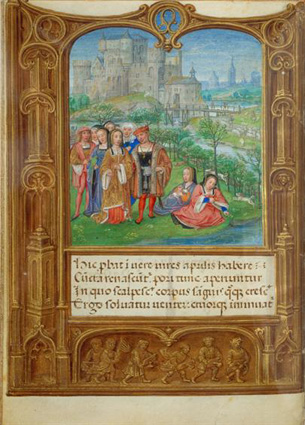 Hic probat in vere vires aprilis habere
Cuncta renascunt' pori tunc aperiuntur
In quo scalpesc' corpus sanguis quoque cresc'
Ergo solvatur venter cruorque minuat'